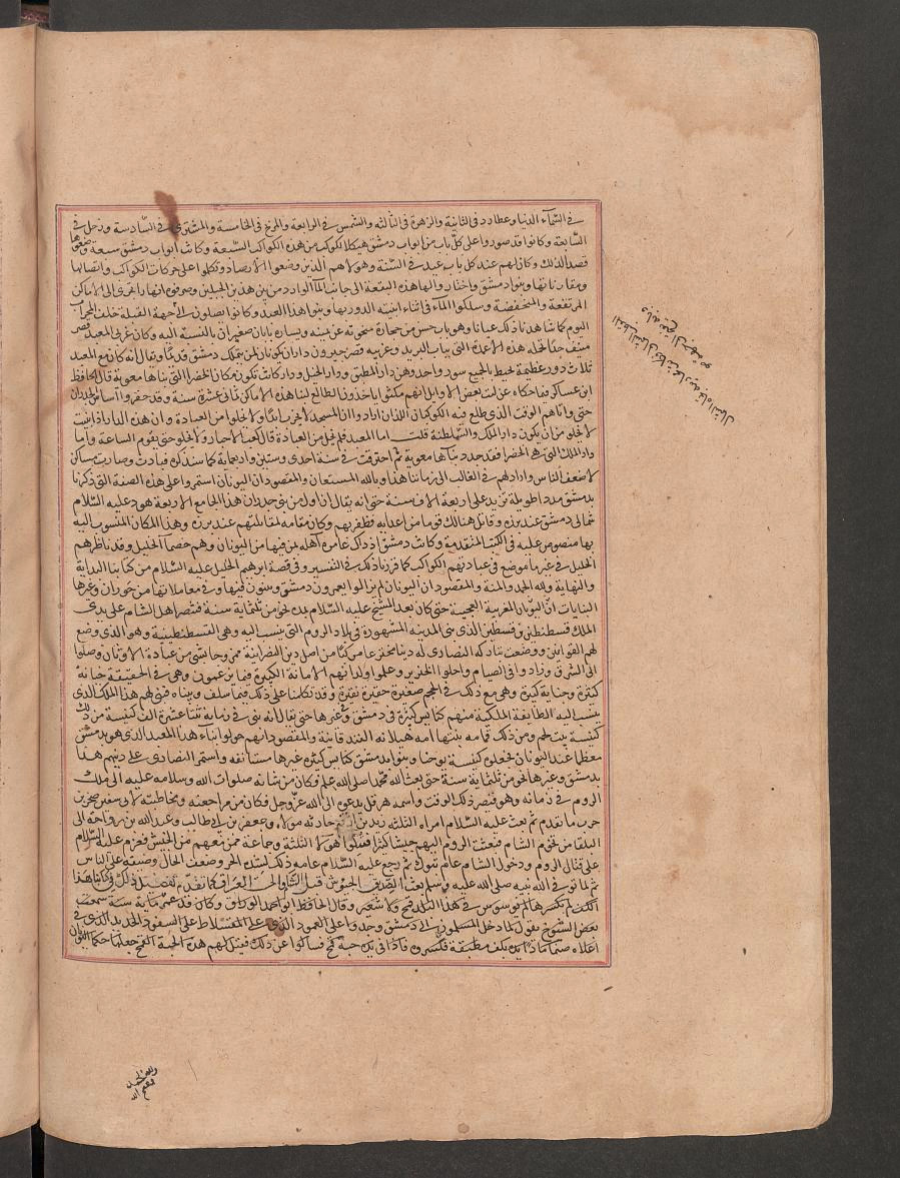 في السماء الدنيا وعطارد في الثانية والزهرة في الثالثة والشمس في الرابعة والمريخ في الخامسة والمشتري في السادسة وزحل في
السابعة وكانوا قد صوروا على كل باب من ابواب دمشق هيكلا لكوكب من هذه الكواكب السبعة وكانت ابواب دمشق سبعة وضعوها
قصدا لذلك وكان لهم عند كل باب عيد في السنة وهولاء هم الذين وضعوا الارصاد وتكلموا على حركات الكواكب واتصالها
ومقارناتها وبنوا دمشق واختاروا لها هذه البقعة الى جانب الماء الوارد من بين هذين الجبلين وصرفوه انهارا تجري الى الاماكن
المرتفعة والمنخفضة وسلكوا الماء في اثناء ابنية الدور بها وبنوا هذا المعبد وكانوا يصلون الى جهة القبلة خلف المحراب
اليوم كما شاهدنا ذلك عيانا وهو باب حسن من حجارة منحوتة عن يمينه ويساره بابان صغيران بالنسبة اليه وكان غربي المعبد قصر
منيف جدا تحمله هذه الاعمدة التي بباب البريد وغربيه قصر جيرون داران تكونان لمن يتملك دمشق قديما ويقال انه كان مع المعبد
ثلاث دور عظيمة يحيط بالجميع سور واحد وهن دار المطبق ودار الخيل ودار كانت تكون مكان الخضرا التي بناها معوية قال الحافظ
ابن عساكر فيما حكاه عن كتب بعض الاوايل انهم مكثوا ياخذون الطالع لبنا هذه الاماكن ثماني عشرة سنة وقد حفروا اساس الجدران
حتى واتاهم الوقت الذي طلع فيه الكوكبان اللذان ارادوا ان المسجد لا يخرب ابدا ولا يخلوا من العبادة وان هذه الدار اذا بنيت
لا تخلو من ان يكون دار الملك والسلطنة قلت اما المعبد فلم يخل من العبادة قال كعب الاحبار ولا يخلو حتى يقوم الساعة واما
دار الملك التي هي الخضرا فقد جدد بناها معوية ثم احرقت في سنة احدى وستين واربعماية كما سنذكره فبادت وصارت مساكن
لاضعف الناس وارادلهم في الغالب الى زماننا هذا وبالله المستعان والمقصود ان اليونان استمروا على هذه الصفة التي ذكرنا
بدمشق مددا طويلة تزيد على اربعة الاف سنة حتى انه يقال ان اول من بنى جدران هذا الجامع الاربعة هود عليه السلام
بها منصوص عليه في الكتب المتقدمة وكانت دمشق اذ ذاك عامرة اهلة بمن فيها من اليونان وهم خصما الخليل وقد ناظرهم
الخليل في غير ما موضع في عبادتهم الكواكب كما قررنا ذلك في التفسير وفي قصة ابرهيم الخليل عليه السلام من كتابنا البداية
والنهاية ولله الحمد والمنة والمقصود ان اليونان لم يزالوا يعمرون دمشق ويبنون فيها وفي معاملاتها من حوران وغيرها
البنايات الغريبة العجيبة حتى كان بعد المسيح عليه السلام بمدة نحو من ثلثماية سنة فتنصر اهل الشام على يدي
الملك قسطنطين بن قسطس الذي بنى المدينة المشهورة في بلاد الروم التي ينسب اليه وهي القسطنطينية وهو الذي وضع
الى الشرق وزادوا في الصيام واحلوا الخنزير وعلموا اولادهم الامانة الكبيرة فيما يزعمون وهي في الحقيقة خيانة
كبيرة وجناية كبيرة وهي مع ذلك في الحجم صغيرة حقيرة وقد تكلمنا على ذلك فيما سلف وبيناه فبنى لهم هذا الملك الذي
ينسب اليه الطايفة الملكية منهم كنايس كثيرة في دمشق وفي غيرها حتى يقال انه بنى في زمانه ثنتا عشرة الف كنيسة من ذلك
كنيسة بيت لحم ومن ذلك قمامة بنتها امه هيلانه والمقصود انهم حولوا بناء هذا المعبد الذي هو بدمشق
معظما عند اليونان فجعلوه كنيسة يوحنا وبنوا بدمشق كنايس كثيرة غيرها مستانفة واستمر النصارى على دينهم هذا
بدمشق وغيرها نحو من ثلثماية سنة حتى بعث الله محمدا صلى الله عليه وسلم فكان من شانه صلوات الله وسلامه عليه الى ملك
الروم في زمانه وهو قيصر ذلك الوقت واسمه هرقل يدعوه الى الله عز وجل فكان من مراجعته ومخاطبته لابي سفين صخر بن
حرب ما تقدم ثم بعث عليه السلام امراه الثلثة زيد بن حارثه مولاه وجعفر بن ابي طالب وعبد الله بن رواحة الى
البلقا من تخوم الشام فبعثت الروم اليهم جيشا كثيرا فقتلوا هولاء الثلثة وجماعة ممن معهم من الجيش فعزم عليه السلام
على قتال الروم ودخول الشام عام تبوك ثم رجع عليه السلام عامه ذلك لشدة الحر وضعف الحال وضيقه على الناس
ثم لما توفي الله نبيه صلى الله عليه وسلم بعث الصديق الجيوش قبل الشام والى العراق كما تقدم تفصيل ذلك في كتابنا هذا
بعض الشيوخ يقول لما دخل المسلمون الى دمشق وجدوا على العمود الذي على المقسلاط على السفود الحديد الذي في